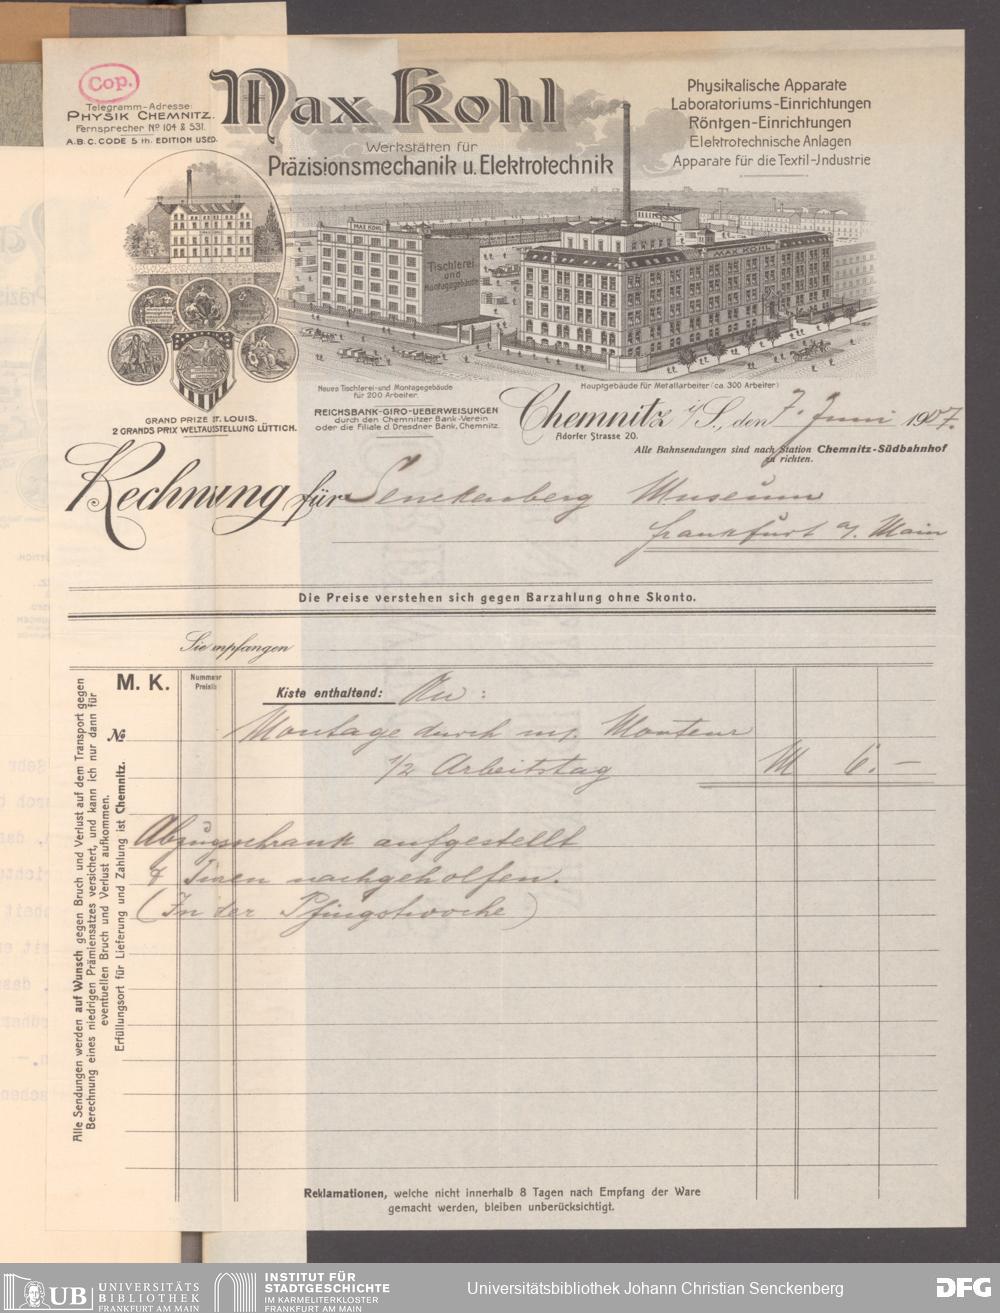 Cop.
Telegramm-Adresse:
PHYSIK CHEMNITZ.
Fernsprecher No 104 & 531.
A.B.C. CODE 5 th. EDITION USED.
Max Kohl
Werkstätten für
Präzisionsmechanik u. Elektrotechnik
Physikalische Apparate
Laboratoriums-Einrichtungen
Röntgen-Einrichtungen
Elektrotechnische Anlagen
Apparate für die Textil-Industrie
MAX KOHL
Tischlerei
und
Montagegebäude
MAX KOHL
Neues Tischlerei-und Montagegebäude
für 200 Arbeiter.
Hauptgebäude für Metallarbeiter (ca. 300 Arbeiter)
GRAND PRIZE ST. LOUIS.
2 GRANDS PRIX WELTAUSSTELLUNG LÜTTICH.
REICHSBANK-GIRO-UEBERWEISUNGEN
durch den Chemnitzer Bank-Verein
oder die Filiale d. Dresdner Bank, Chemnitz.
Chemnitz i/S., den 7. Juni 1907.
Adorfer Strasse 20.
Alle Bahnsendungen sind nach Station Chemnitz-Südbahnhof
zu richten.
Rechnung für Senckenberg Museum
Frankfurt a/. Main
Die Preise verstehen sich gegen Barzahlung ohne Skonto.
Sie empfangen
M. K.
Nummer
Preisliste
Kiste enthaltend: An :
No
Montage durch m/. Monteur
1/2 Arbeitstag M 6.-
Abzugsschrank aufgestellt
& Türen nachgeholfen.
(In der Pfingstwoche)
Alle Sendungen werden auf Wunsch gegen Bruch und Verlust auf dem Transport gegen
Berechnung eines niedrigen Prämiensatzes versichert, und kann ich nur dann für
eventuellen Bruch und Verlust aufkommen.
Erfüllungsort für Lieferung und Zahlung ist Chemnitz.
Reklamationen, welche nicht innerhalb 8 Tagen nach Empfang der Ware
gemacht werden, bleiben unberücksichtigt.
UB UNIVERSITÄTS
BIBLIOTHEK
FRANKFURT AM MAIN
INSTITUT FÜR
STADTGESCHICHTE
IM KARMELITERKLOSTER
FRANKFURT AM MAIN
Universitätsbibliothek Johann Christian Senckenberg
DFG